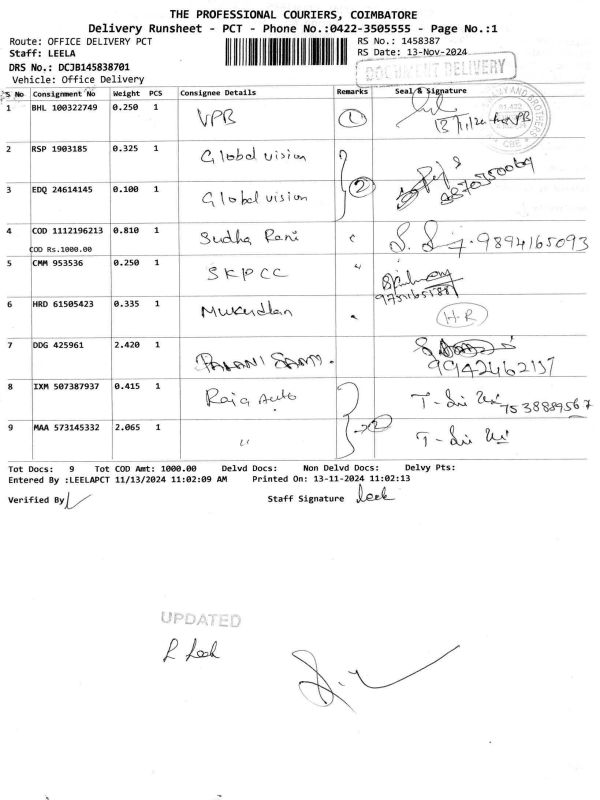 THE PROFESSIONAL COURIERS, COIMBATORE
Delivery Runsheet - PCT - Phone No.:0422-3505555 - Page No.:1
Route: OFFICE DELIVERY PCT RS No.: 1458387
Staff: LEELA RS Date: 13-Nov-2024
DRS No.: DCJB145838701
Vehicle: Office Delivery
DOCUMENT DELIVERY
S No Consignment No Weight PCS Consignee Details Remarks Seal & Signature
1 BHL 100322749 0.250 1 VPB 1
2 RSP 1903185 0.325 1 Global vision
3 EDQ 24614145 0.100 1 Global vision 2
4 COD 1112196213 0.810 1 Sudha Rani 9894165093
COD Rs.1000.00
5 CMM 953536 0.250 1 SKPCC "
6 HRD 61505423 0.335 1 H-R
7 DDG 425961 2.420 1
8 IXM 507387937 0.415 1 Raja Auto 7538889567
9 MAA 573145332 2.065 1 "
Tot Docs: 9 Tot COD Amt: 1000.00 Delvd Docs: Non Delvd Docs: Delvy Pts:
Entered By :LEELAPCT 11/13/2024 11:02:09 AM Printed On: 13-11-2024 11:02:13
Verified By Staff Signature Leek
UPDATED